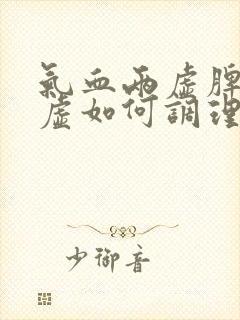 氣血兩虛脾
虛如何調理
少御音